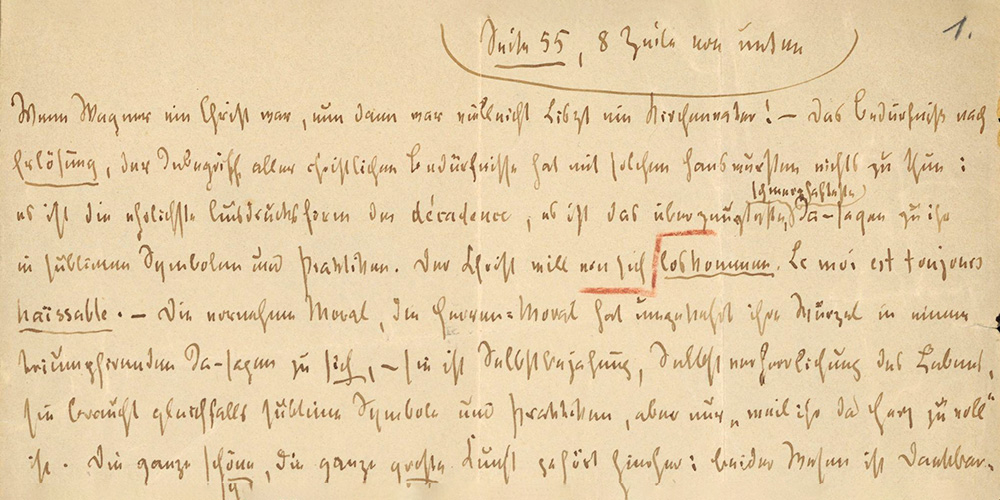 1.
Seite 55, 8 Zeile von unten
Wenn Wagner ein Christ war, nun dann war vielleicht Liszt ein Kirchenvater! — Das Bedürfniß nach
Erlösung, der Inbegriff aller christlichen Bedürfnisse hat mit solchen Hanswursten nichts zu thun:
es ist die ehrlichste Ausdrucksform der décadence, es ist das überzeugteste, schmerzhafteste Ja-sagen zu ihr
in sublimen Symbolen und Praktiken. Der Christ will von sich loskommen. Le moi est toujours
haïssable. — Die vornehme Moral, die Herren-Moral hat umgekehrt ihre Wurzel in einem
triumphirenden Ja-sagen zu sich, — sie ist Selbstbejahung, Selbstverherrlichung des Lebens,
sie braucht gleichfalls sublime Symbole und Praktiken, aber nur „weil ihr das Herz zu voll“
ist. Die ganze schöne, die ganze große Kunst gehört hierher: beider Wesen ist Dankbar-